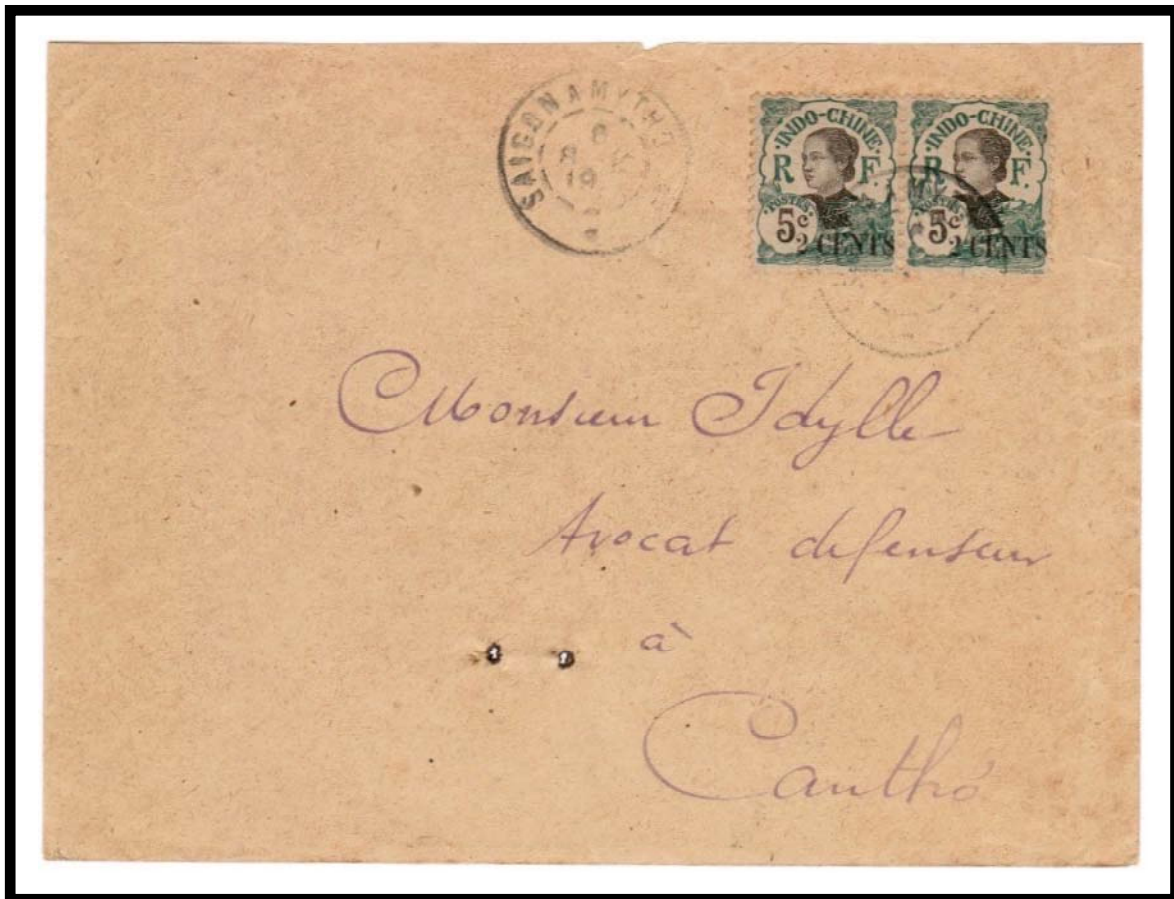 SAIGON A MYTHO
INDO-CHINE
R F.
POSTES
5c
2 CENTS
INDO-CHINE
R F.
POSTES
5c
2 CENTS
Monsieur Idylle
Avocat defenseur
à
Cantho